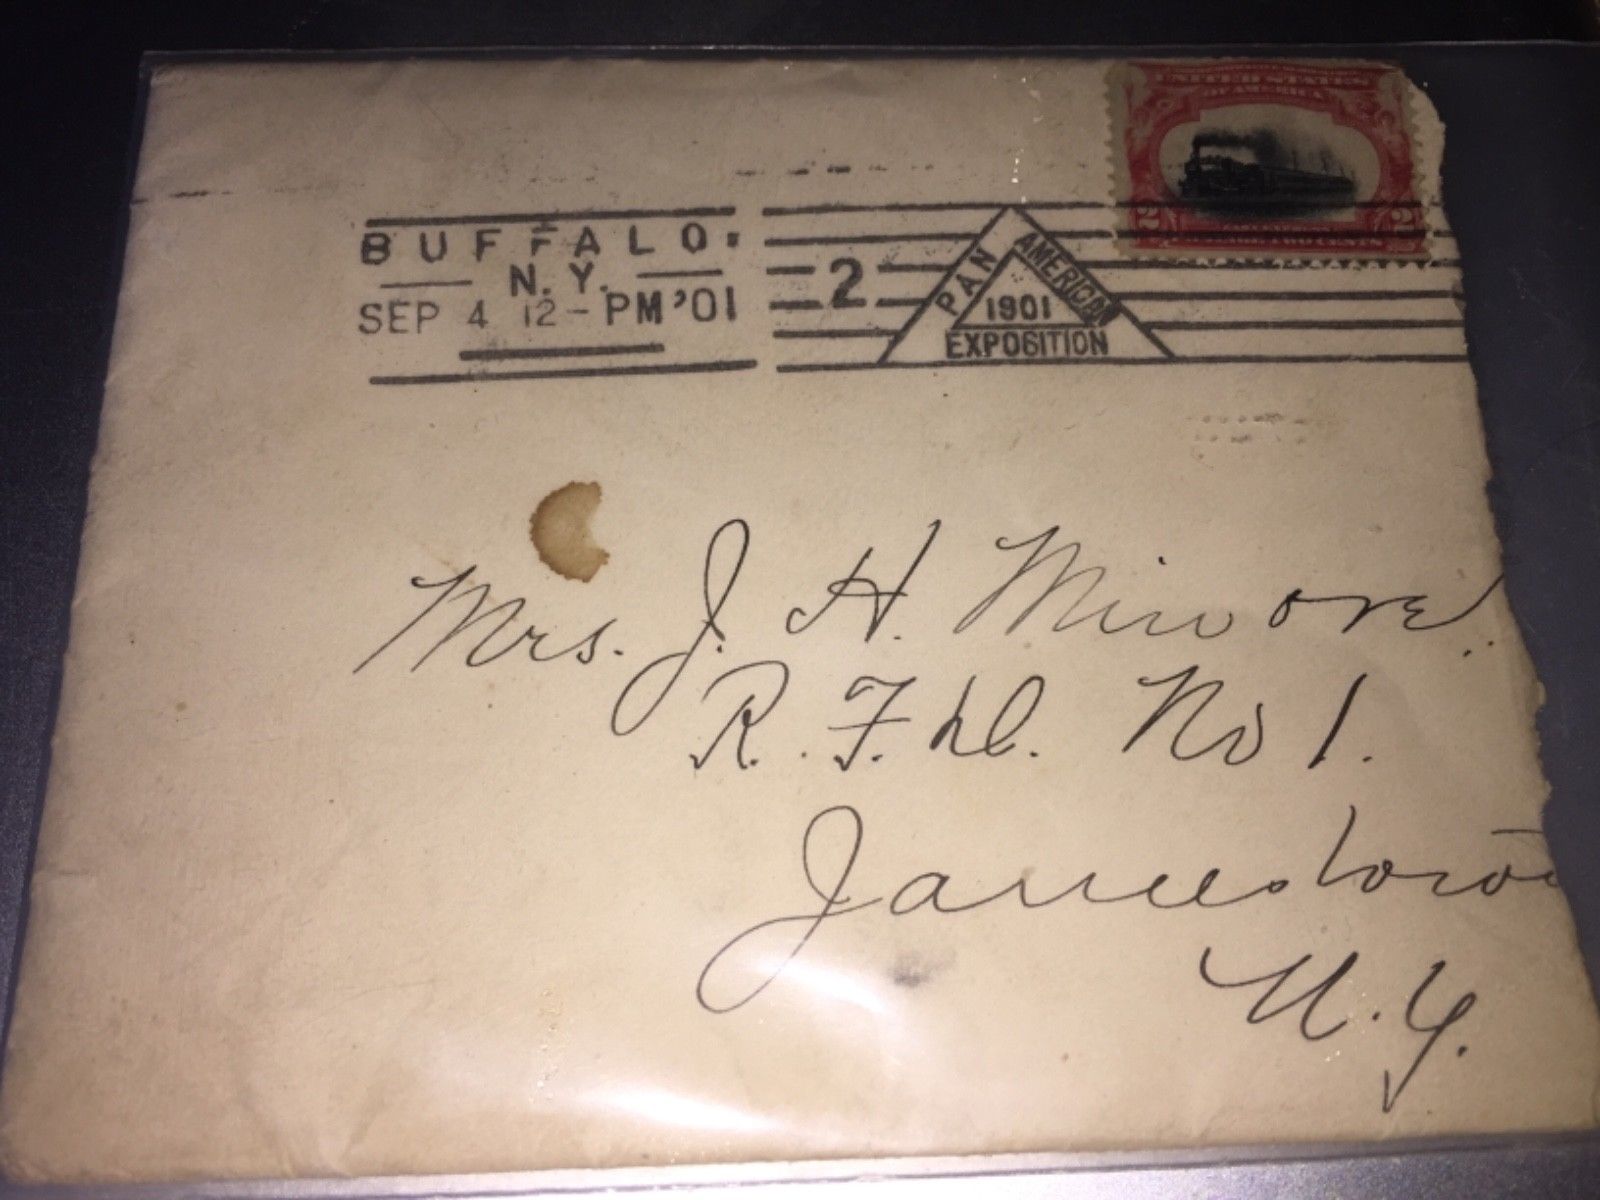 UNITED STATES
OF AMERICA
2 2
TWO CENTS
BUFFALO.
N.Y.
SEP 4 12-PM '01
2
PAN AMERICAN
1901
EXPOSITION
Mrs. J. H.
R. F. D. No 1.
Jamestown
N.Y.